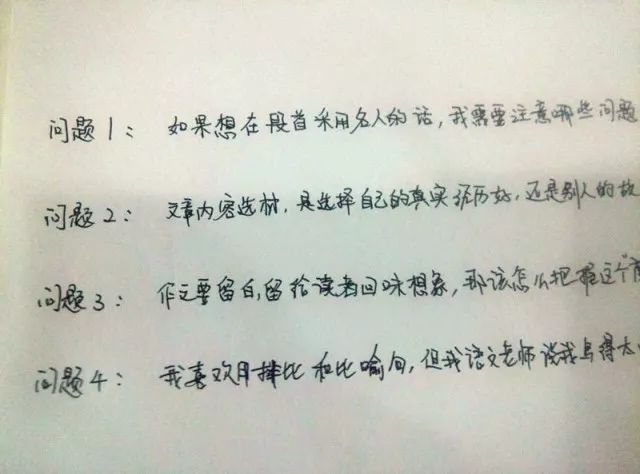 问题1： 如果想在段首采用名人的话，我需要注意哪些问题
问题2： 文章内容选材，是选择自己的真实经历好，还是别人的故
问题3： 作文要留白，留给读者回味想象，那该怎么把握这个
问题4： 我喜欢用排比和比喻句，但我语文老师说我写得太